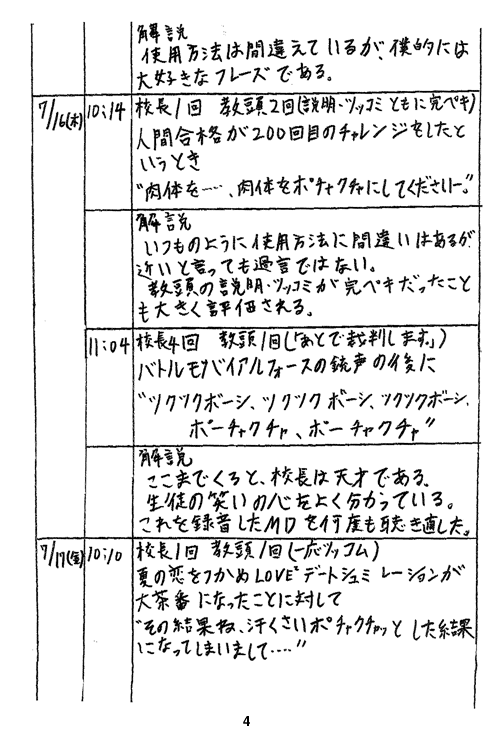 解説
使用方法は間違えているが、僕的には
大好きなフレーズである。
7/16(木) 10:14 校長1回 教頭2回(説明・ツッコミともに完ペキ)
人間合格が200回目のチャレンジをしたと
いうとき
"肉体を……、肉体をポチャクチャにしてくださいー。"
解説
いつものように使用方法に間違いはあるが
近いと言っても過言ではない。
教頭の説明・ツッコミが完ペキだったこと
も大きく評価される。
11:04 校長4回 教頭1回(「あとで裁判します。」)
バトルモバイアルフォースの銃声の後に
"ツクツクボーシ、ツクツクボーシ、ツクツクボーシ、
ボーチャクチャ、ボーチャクチャ"
解説
ここまでくると、校長は天才である。
生徒の笑いの心をよく分かっている。
これを録音したMDを何度も聴き直した。
7/17(金) 10:10 校長1回 教頭1回(一応ツッコム)
夏の恋をつかめLOVE²デートシュミレーションが
大茶番になったことに対して
"その結果ね、汗くさいポチャクチャッとした結果
になってしまいまして‥‥"
4